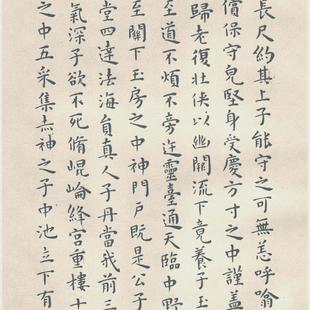 長尺約其上子能守之可無恙呼噏
償保守皃堅身受慶方寸之中謹蓋
歸老復壯俠以幽闕流下竟養子玉
至道不煩不旁迕靈臺通天臨中野
至關下玉房之中神門戶既是公子
堂四達法海員真人子丹當我前三
氣深子欲不死脩崐崘絳宮重樓十
之中五采集赤神之子中池立下有